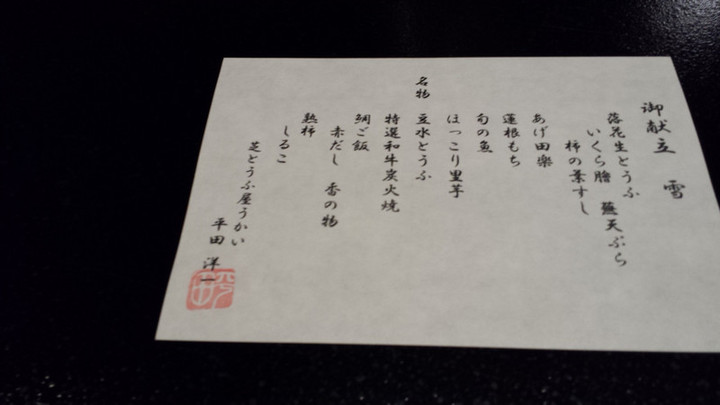 御献立　雪
落花生とうふ
いくら膾　蕪天ぷら
柿の葉すし
あげ田楽
蓮根もち
旬の魚
ほっこり里芋
名物　豆水とうふ
特選和牛炭火焼
鯛ご飯
赤だし　香の物
熟柿
しるこ
芝とうふ屋うかい
平田　洋一